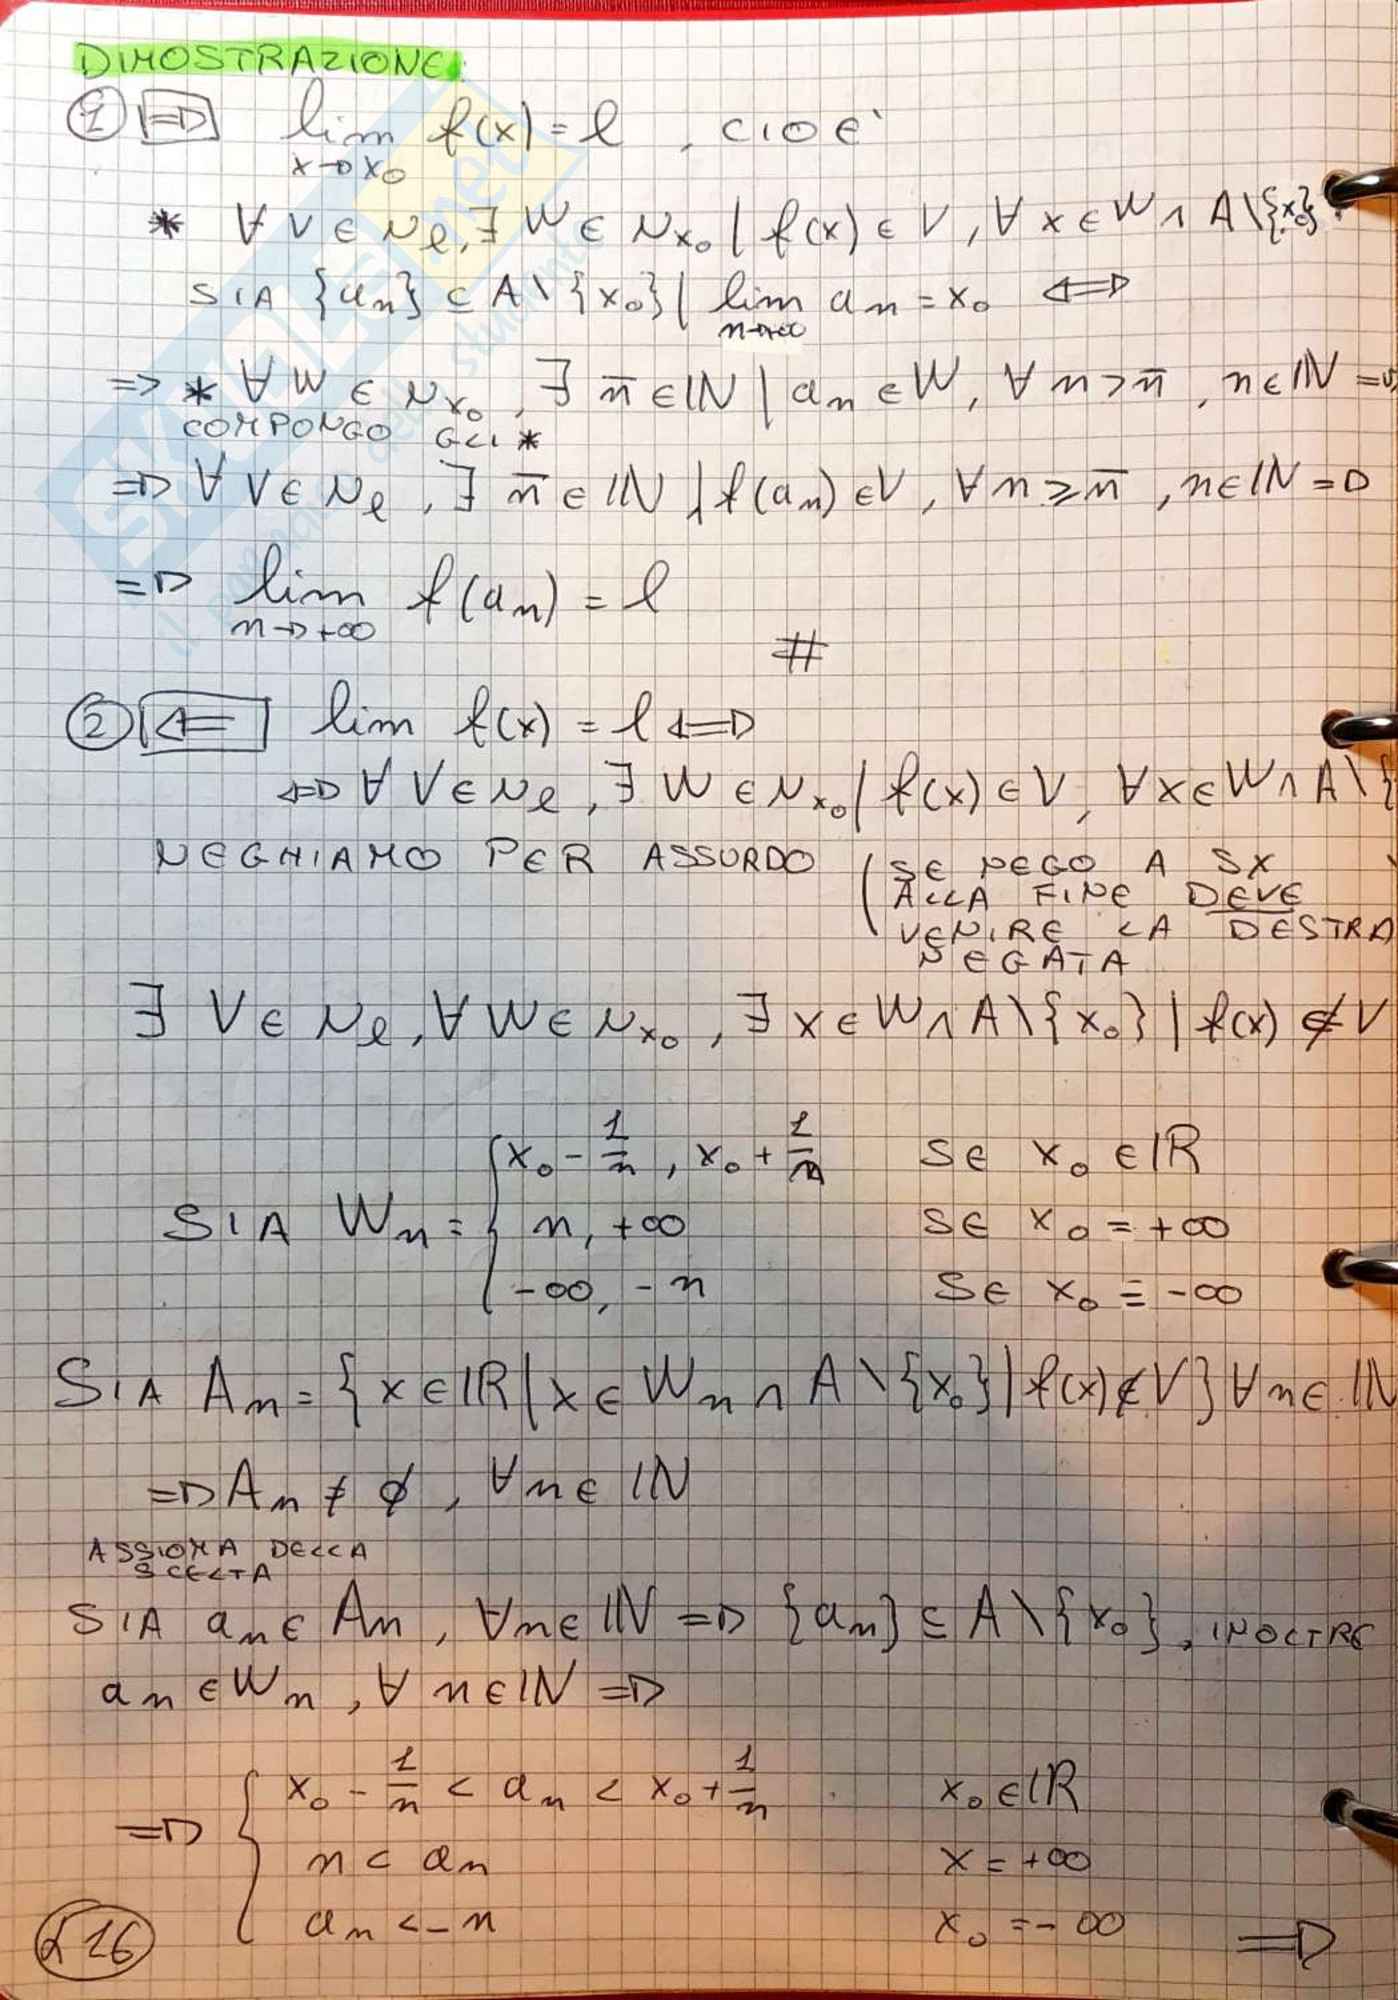 DIMOSTRAZIONE:
① [⇒] lim f(x) = l , CIOE'
x→x₀
* ∀ V ∈ N_l, ∃ W ∈ N_x₀ | f(x) ∈ V, ∀ x ∈ W ∩ A \ {x₀}
SIA {a_n} ⊆ A \ {x₀} | lim a_n = x₀ ⇔
n→+∞
=> * ∀ W ∈ N_x₀, ∃ n̄ ∈ ℕ | a_n ∈ W, ∀ n > n̄, n ∈ ℕ ⇒
COMPONGO GLI *
⇒ ∀ V ∈ N_l, ∃ n̄ ∈ ℕ | f(a_n) ∈ V, ∀ n ⩾ n̄, n ∈ ℕ ⇒
⇒ lim f(a_n) = l
n→+∞
#
② [⇐] lim f(x) = l ⇔
⇔ ∀ V ∈ N_l, ∃ W ∈ N_x₀ | f(x) ∈ V, ∀ x ∈ W ∩ A \ {
NEGHIAMO PER ASSURDO (SE NEGO A SX
ALLA FINE DEVE
VENIRE LA DESTRA
NEGATA
∃ V ∈ N_l, ∀ W ∈ N_x₀, ∃ x ∈ W ∩ A \ {x₀} | f(x) ∉ V
SIA W_n = { x₀ - 1/n, x₀ + 1/n SE x₀ ∈ ℝ
n, +∞ SE x₀ = +∞
-∞, -n SE x₀ = -∞
SIA A_n = {x ∈ ℝ | x ∈ W_n ∩ A \ {x₀} | f(x) ∉ V} ∀ n ∈ ℕ
⇒ A_n ≠ ∅, ∀ n ∈ ℕ
ASSIOMA DELLA
SCELTA
SIA a_n ∈ A_n, ∀ n ∈ ℕ ⇒ {a_n} ⊆ A \ {x₀}, INOLTRE
a_n ∈ W_n, ∀ n ∈ ℕ ⇒
⇒ { x₀ - 1/n < a_n < x₀ + 1/n x₀ ∈ ℝ
n < a_n x = +∞
a_n < -n x₀ = -∞ ⇒
SKUOLA.net
il portale dello studente